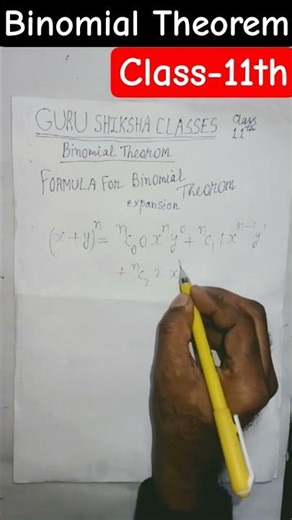 Binomial Theorem
Class-11th
GURU SHIKSHA CLASSES Class 11th
Binomial Theorom
FORMULA FOR Binomial Theorom
expansion
(x+y)ⁿ = ⁿC₀ 0 xⁿy⁰ + ⁿC₁ 1 xⁿ⁻¹y¹
+ ⁿC₂ 2 x